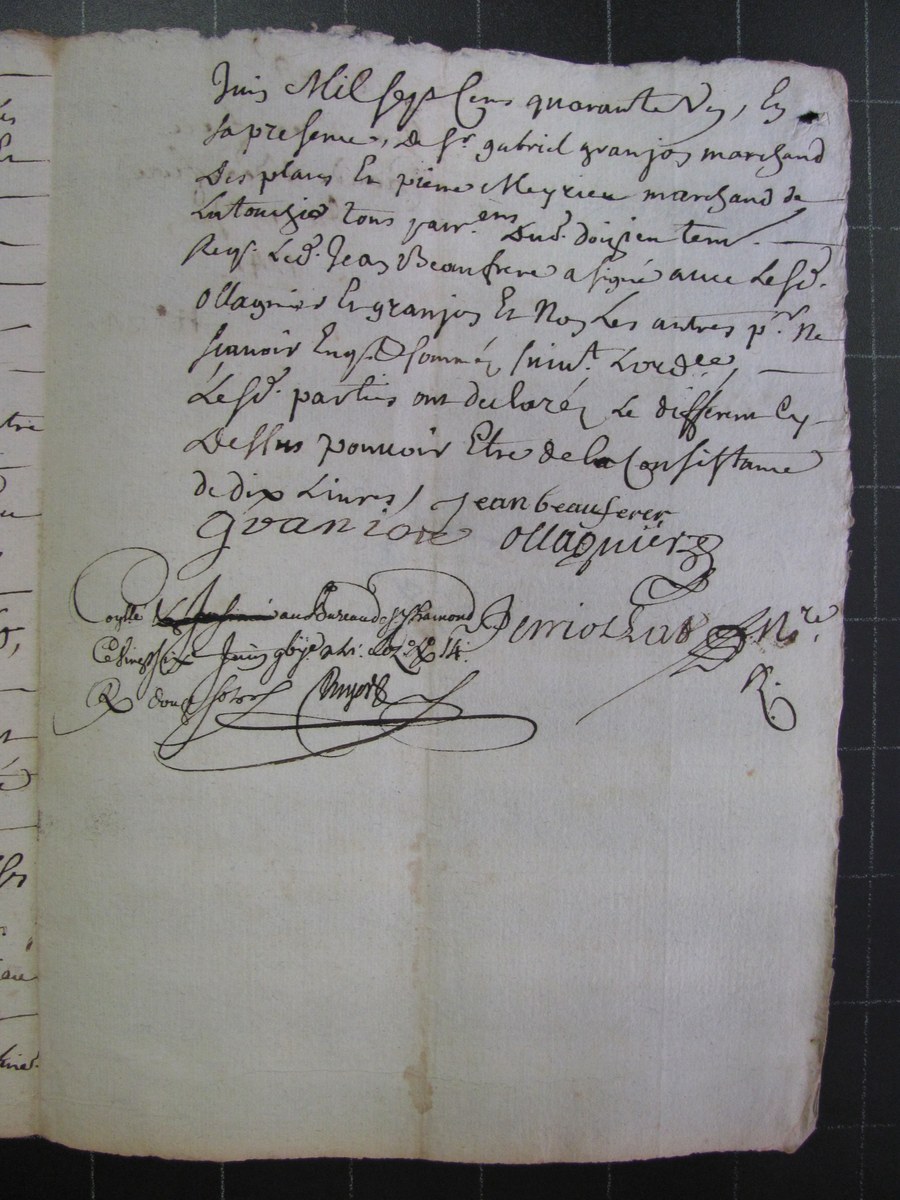 Juin Mil sept Cens quarante Un, En
La presence, De Sr. gabriel granjon marchand
Des plans Et pierre Meyrieu marchand de
Latourzie tous parr.ens Dud. doizieu tem.
Req. Led. Jean Beaufrere a signé avec Lesd.
Ollagnier Et granjon Et Non Les autres pr. Ne
scavoir Enq. & sommés suivt. Lordce,
Lesd. parties ont declarés Le différent Cy
Dessus pouvoir Etre de la Consistance
de dix Livres, jean beauferer
granion ollagnier
au Bureau de St Chamond nore.
Ce vingt six Juin
R. douze sols
R.